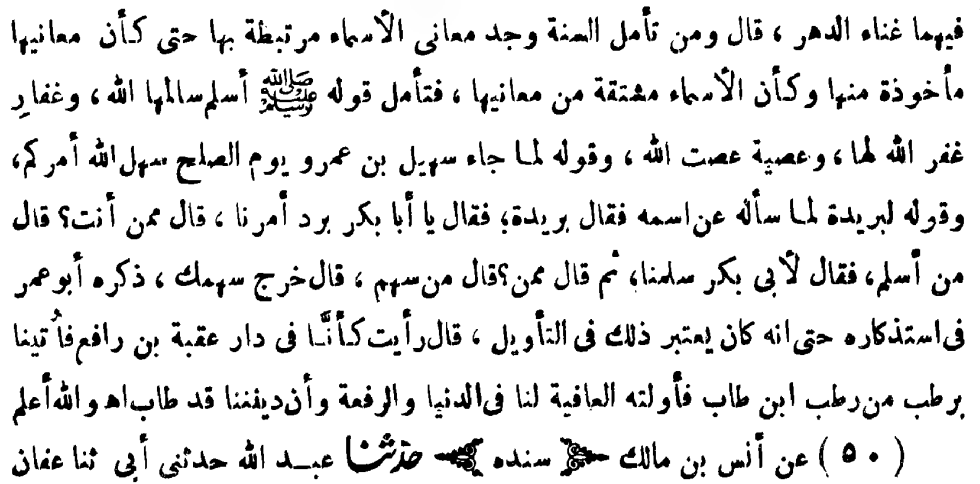 فيهما غناء الدهر ، قال ومن تأمل السنة وجد معاني الأسماء مرتبطة بها حتى كأن معانيها
مأخوذة منها وكأن الأسماء مشتقة من معانيها ، فتأمل قوله ﷺ أسلم سالمها الله ، وغفارِ
غفر الله لها ، وعصية عصت الله ، وقوله لما جاء سهيل بن عمرو يوم الصلح سهل الله أمركم،
وقوله لبريدة لما سأله عن اسمه فقال بريدة، فقال يا أبا بكر برد أمرنا ، قال ممن أنت؟ قال
من أسلم، فقال لأبي بكر سلمنا، ثم قال ممن؟ قال من سهم ، قال خرج سهمك ، ذكره أبو عمر
في استذكاره حتى انه كان يعتبر ذلك في التأويل ، قال رأيت كأنَّا في دار عقبة بن رافع فأُتينا
برطب من رطب ابن طاب فأولته العافية لنا في الدنيا والرفعة وأن ديفننا قد طاب اهـ والله أعلم
(٥٠) عن أنس بن مالك ﴿ سنده ﴾ حدثنا عبد الله حدثني أبي ثنا عفان